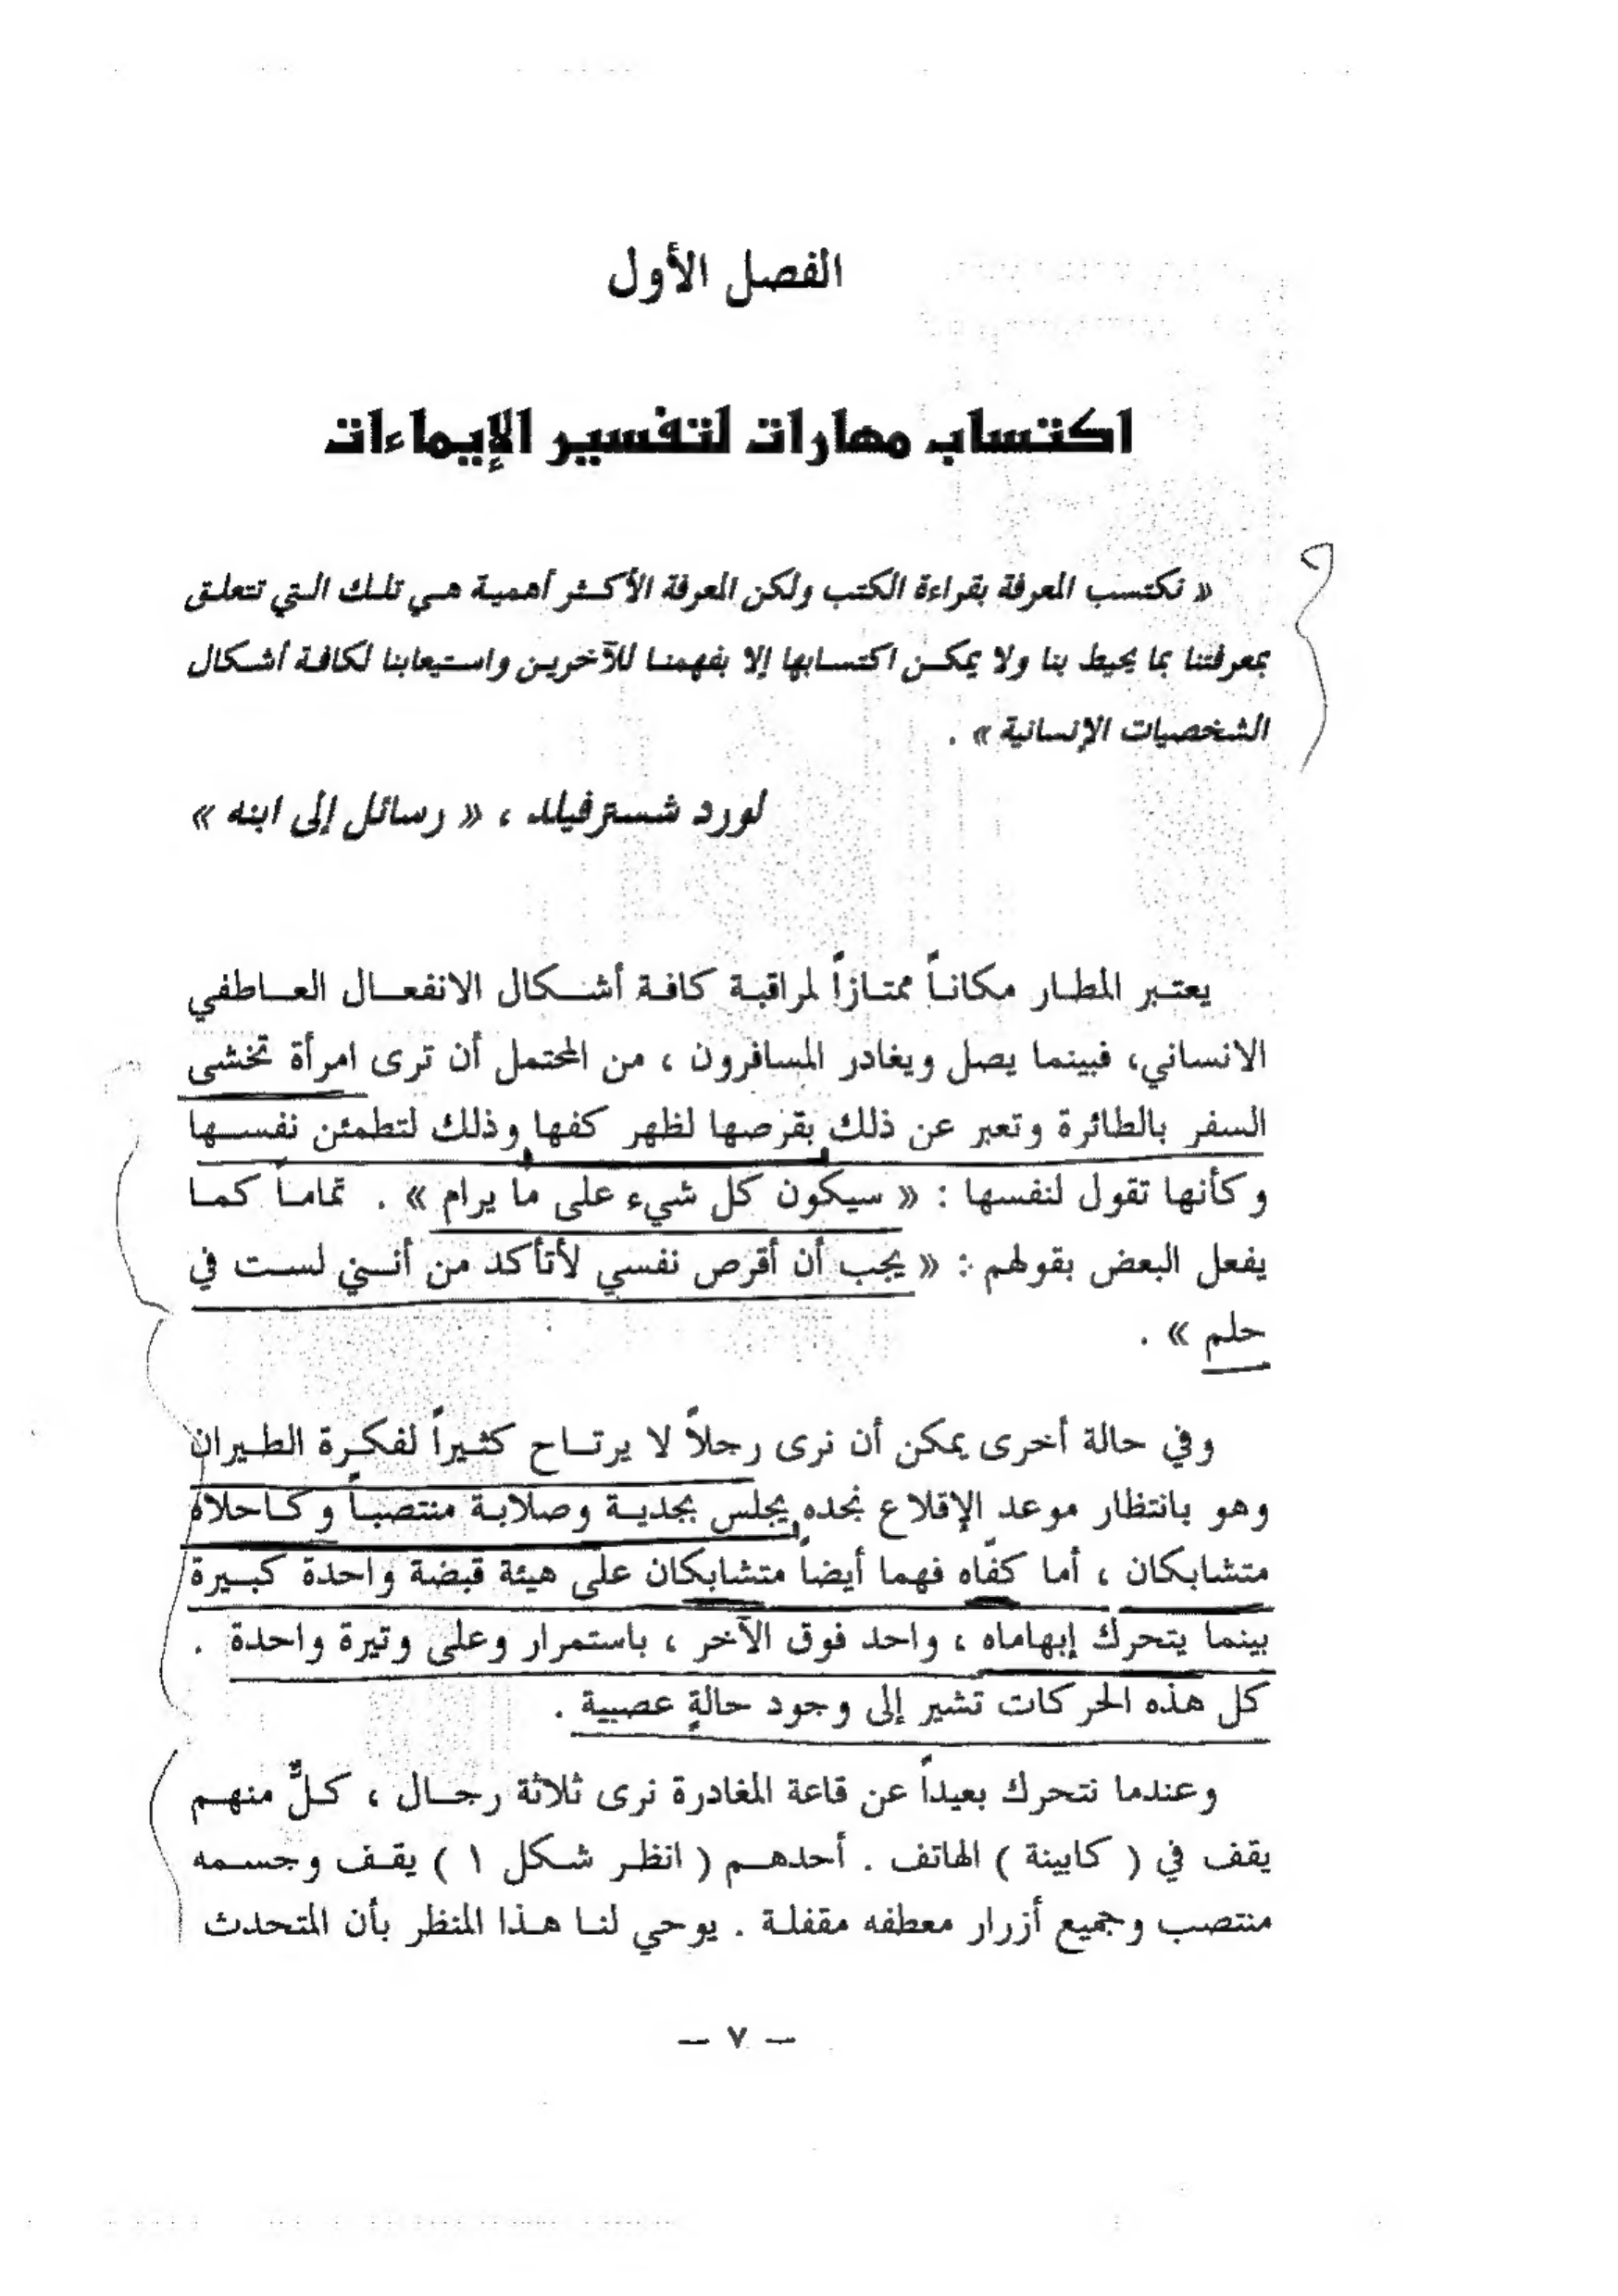 الفصل الأول
اكتساب مهارات لتفسير الإيماءات
« نكتسب المعرفة بقراءة الكتب ولكن المعرفة الأكثر أهمية هي تلك التي تتعلق
بمعرفتنا بما يحيط بنا ولا يمكن اكتسابها إلا بفهمنا للآخرين واستيعابنا لكافة أشكال
الشخصيات الإنسانية » .
لورد شسترفيلد ، « رسائل إلى ابنه »
يعتبر المطار مكاناً ممتازاً لمراقبة كافة أشكال الانفعال العاطفي
الانساني، فبينما يصل ويغادر المسافرون ، من المحتمل أن ترى امرأة تخشى
السفر بالطائرة وتعبر عن ذلك بقرصها لظهر كفها وذلك لتطمئن نفسها
وكأنها تقول لنفسها : « سيكون كل شيء على ما يرام » . تماماً كما
يفعل البعض بقولهم : « يجب أن أقرص نفسي لأتأكد من أنني لست في
حلم » .
وفي حالة أخرى يمكن أن نرى رجلاً لا يرتاح كثيراً لفكرة الطيران
وهو بانتظار موعد الإقلاع نجده يجلس بجدية وصلابة منتصباً وكاحلاه
متشابكان ، أما كفّاه فهما أيضاً متشابكان على هيئة قبضة واحدة كبيرة
بينما يتحرك إبهاماه ، واحد فوق الآخر ، باستمرار وعلى وتيرة واحدة .
كل هذه الحركات تشير إلى وجود حالةٍ عصبية .
وعندما نتحرك بعيداً عن قاعة المغادرة نرى ثلاثة رجال ، كلٌّ منهم
يقف في ( كابينة ) الهاتف . أحدهم ( انظر شكل ١ ) يقف وجسمه
منتصب وجميع أزرار معطفه مقفلة . يوحي لنا هذا المنظر بأن المتحدث
— ٧ —